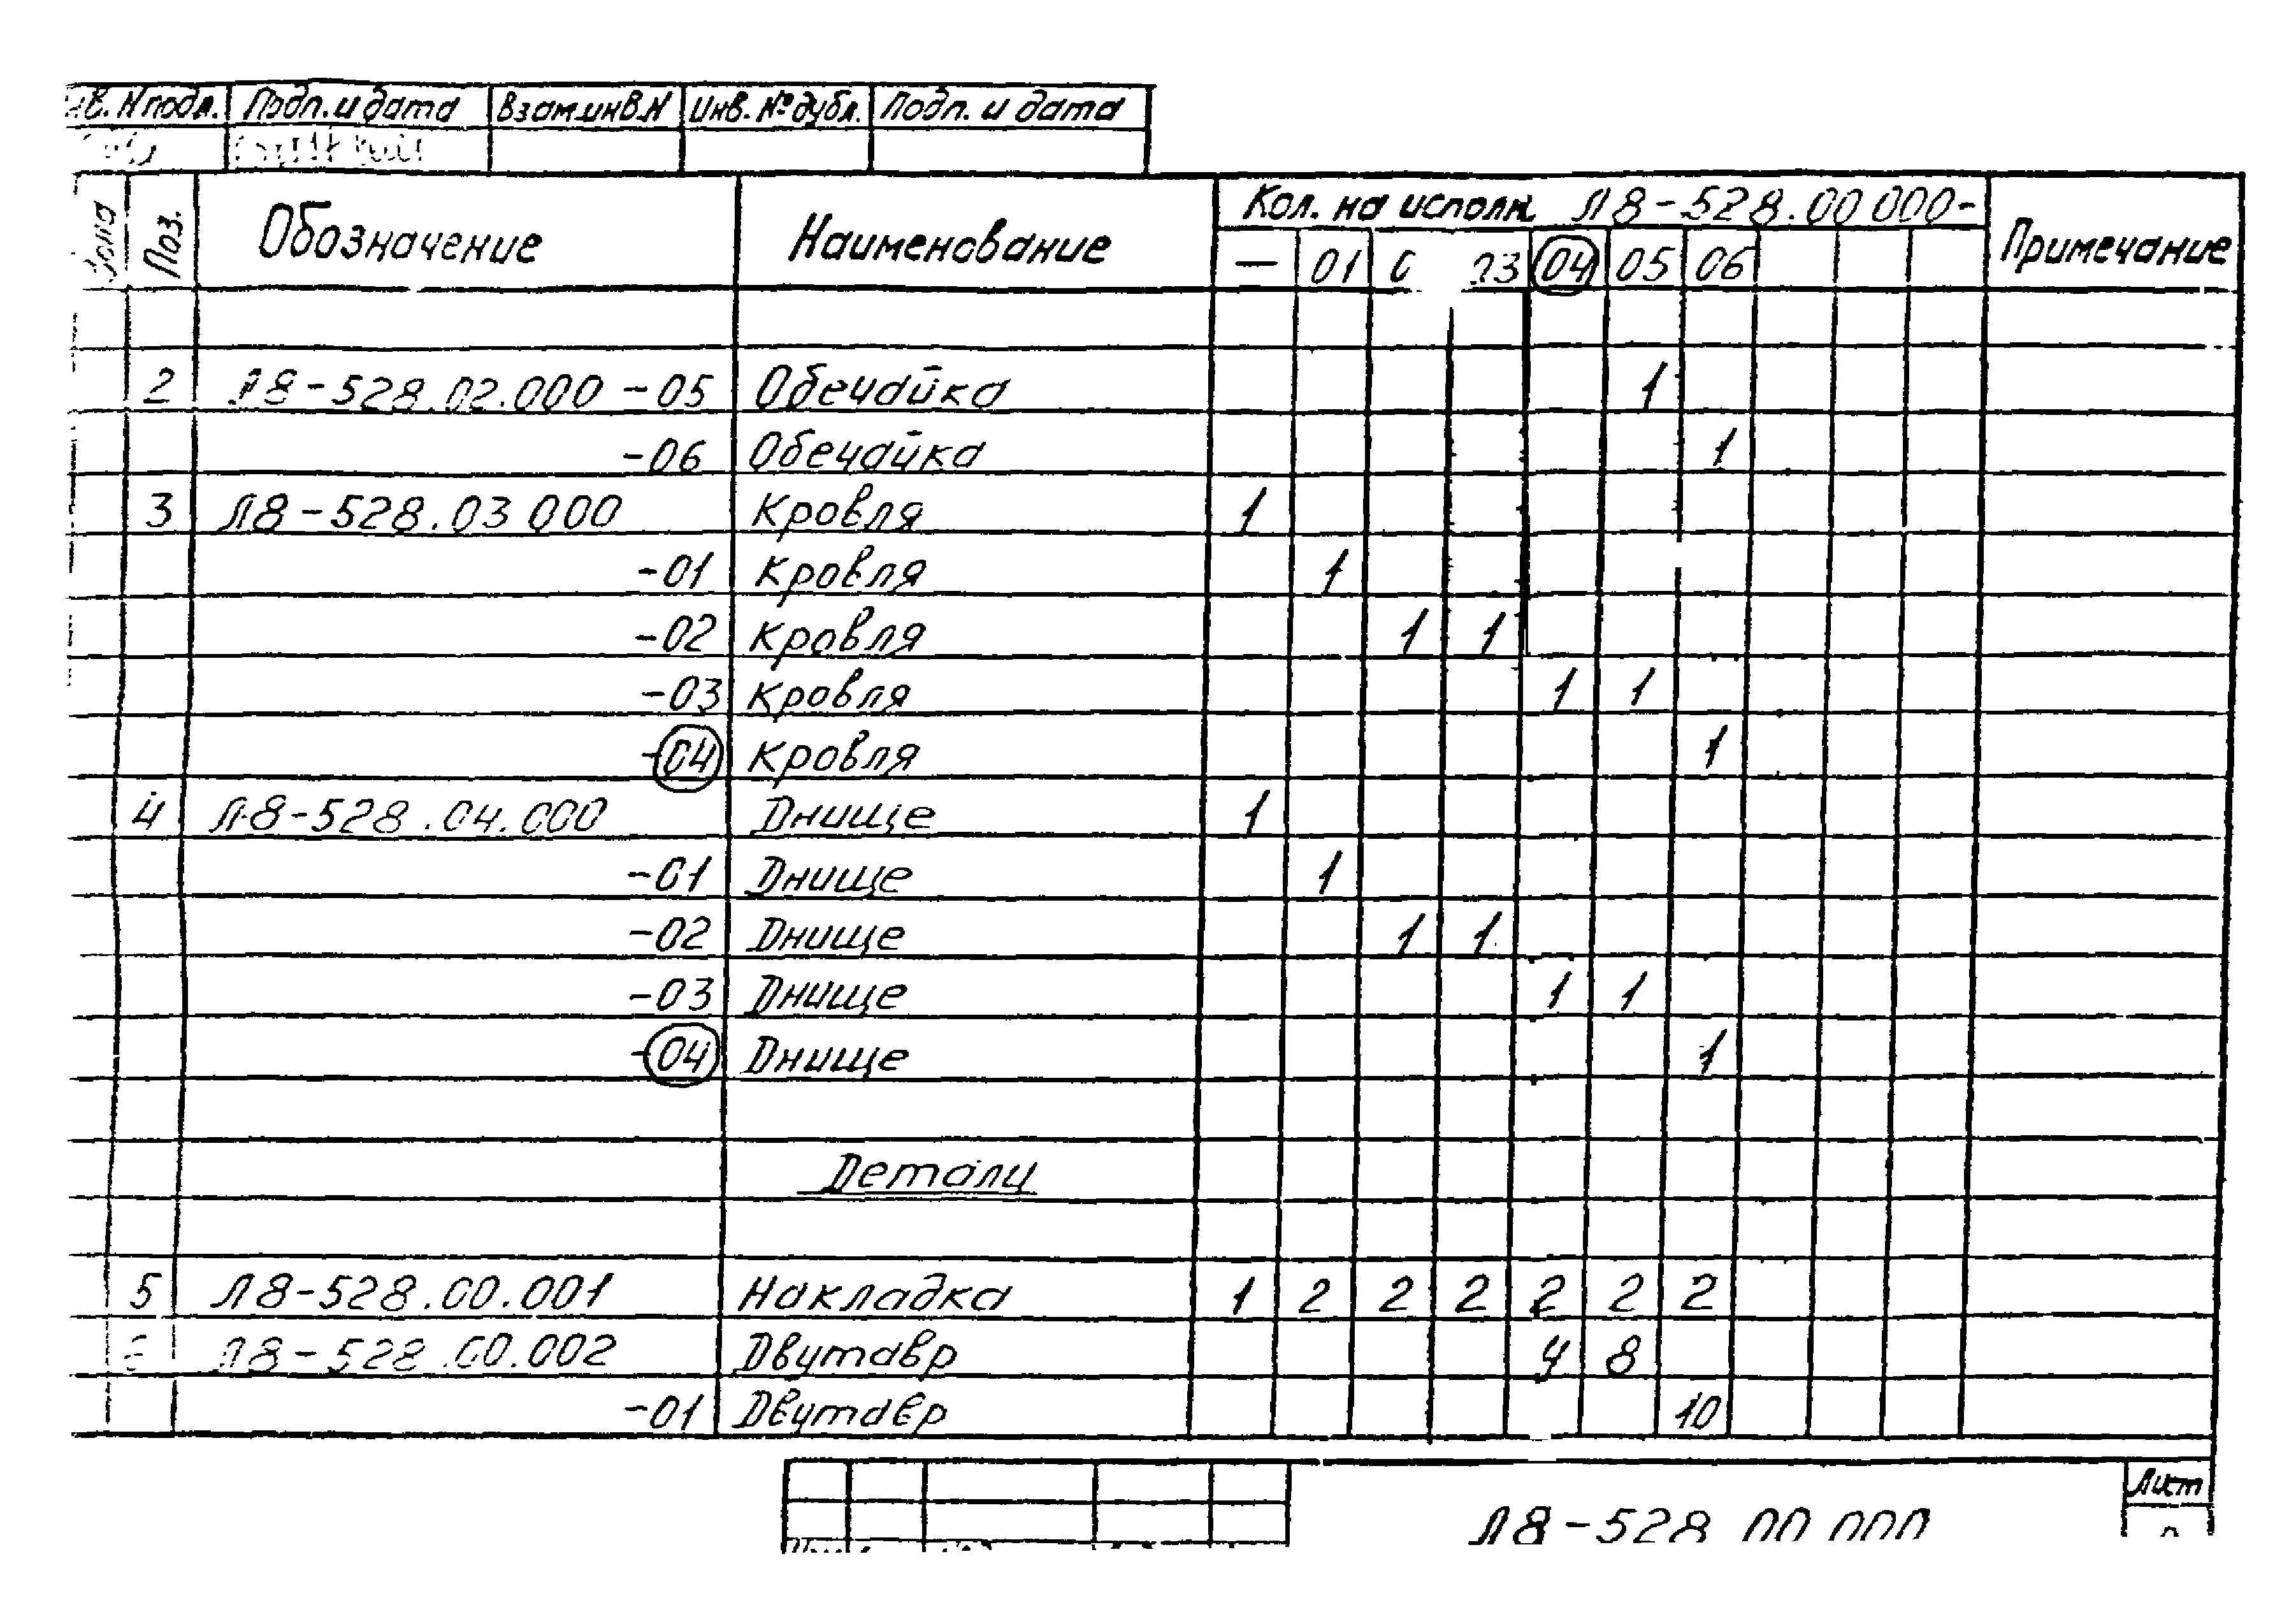 Подп. и дата Взам.инв.N Инв. № дубл. Подп. и дата
Поз. Обозначение Наименование Кол. на исполн. Л8-528.00 000- Примечание
— 01 04 05 06
2 Л8-528.02.000 -05 Обечайка 1
-06 Обечайка 1
3 Л8-528.03 000 Кровля 1
-01 Кровля 1
-02 Кровля 1 1
-03 Кровля 1 1
-04 Кровля 1
4 Л8-528.04.000 Днище 1
-01 Днище 1
-02 Днище 1 1
-03 Днище 1 1
-04 Днище 1
Детали
5 Л8-528.00.001 Накладка 1 2 2 2 2 2 2
Л8-528.00.002 Двутавр 4 8
-01 Двутавр 10
Лист
Л8-528 00 000